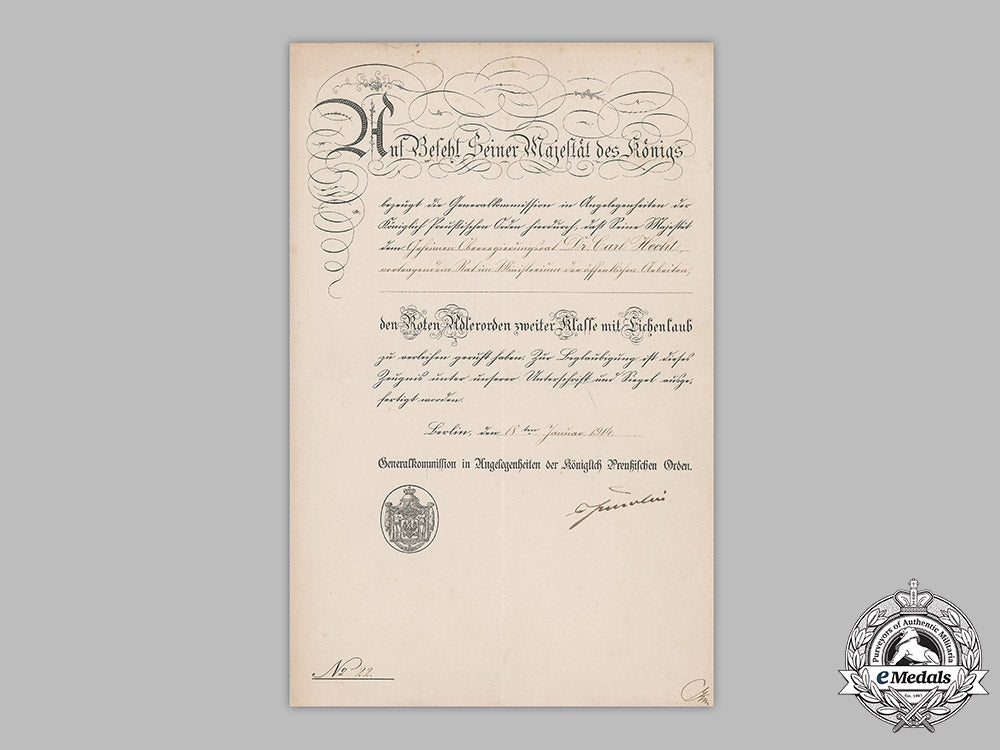 Auf Befehl Seiner Majestät des Königs
bezeugt die Generalkommission in Angelegenheiten der
Königlich Preußischen Orden hierdurch, daß Seine Majestät
dem Geheimen Oberregierungsrat Dr. Carl Hecht,
vortragendem Rat im Ministerium der öffentlichen Arbeiten,
den Roten Adlerorden zweiter Klasse mit Eichenlaub
zu verleihen geruht haben. Zur Beglaubigung ist dieses
Zeugnis unter unserer Unterschrift und Siegel ausge-
fertigt worden.
Berlin, den 18ten Januar 1914.
Generalkommission in Angelegenheiten der Königlich Preußischen Orden.
No 22.
Purveyors of Authentic Militaria
eMedals